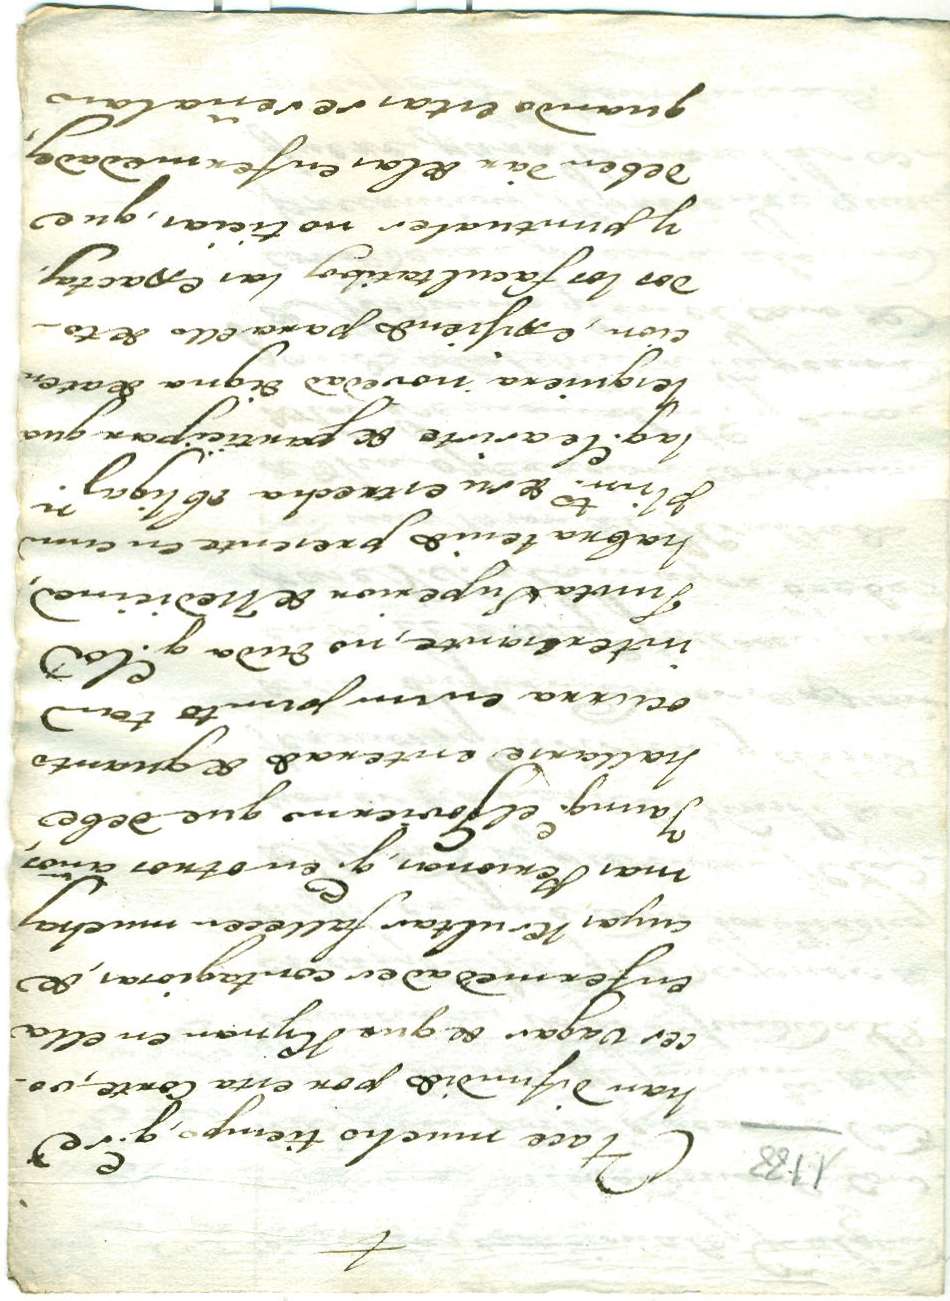 +
1788
Hace mucho tiempo, q.e se
han difundido por esa Corte, vo-
ces vagas de que Reynan en ella
enfermedades contagiosas, de
cuyas Resultas fallecen muchas
mas Personas, q.e en otros años,
Y aunq.e el Govierno que debe
hallarse enterado de quanto
ocurra en un punto tan
interesante, no duda q.e la
Junta Superior de Medicina,
habra tenido presente en cum
plim.to de su estrecha obligaz.n
la q.e le asiste de participar qua
lesquiera novedad digna de aten
cion, exigiendo para ello de to-
dos los facultatibos las exactas,
y puntuales noticias, que
deben dàr de las enfermedades,
quando estas se señalan